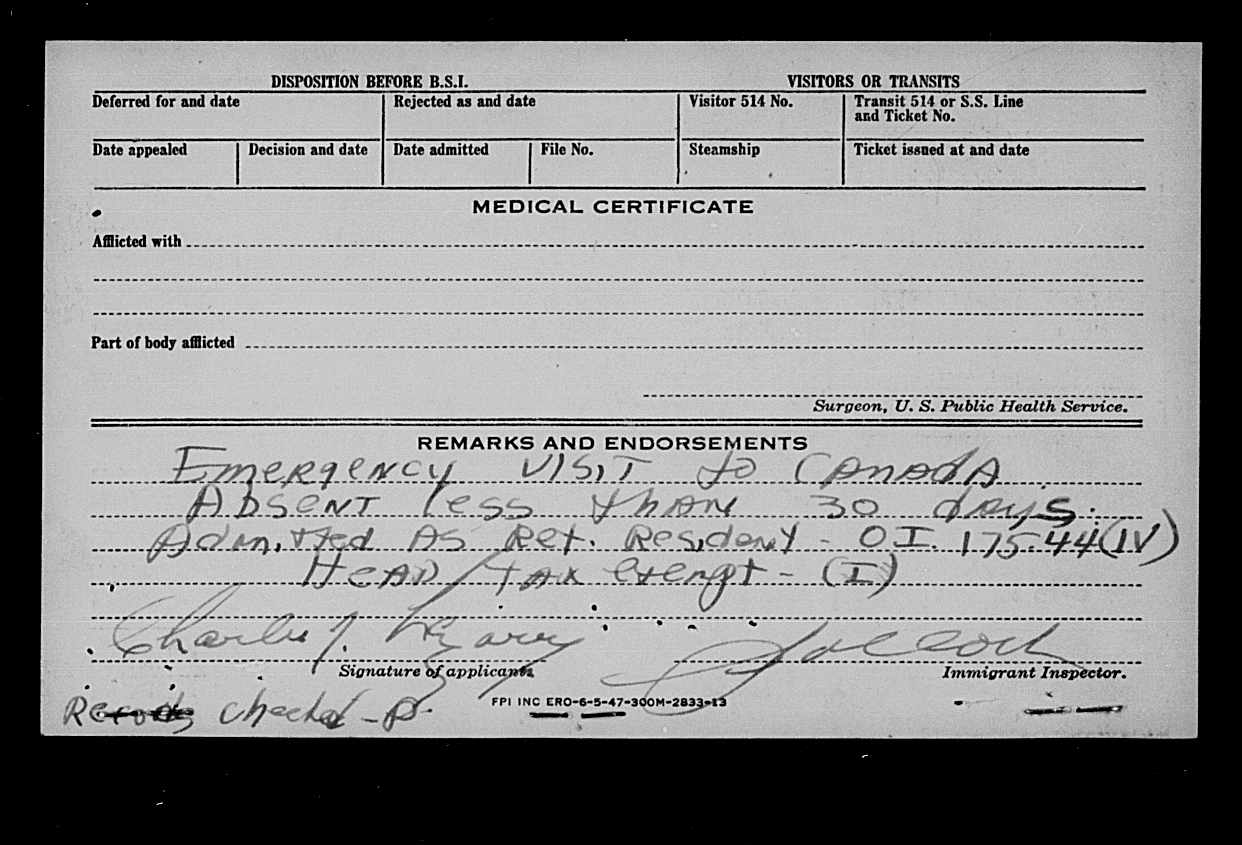 DISPOSITION BEFORE B.S.I. VISITORS OR TRANSITS
Deferred for and date Rejected as and date Visitor 514 No. Transit 514 or S.S. Line
and Ticket No.
Date appealed Decision and date Date admitted File No. Steamship Ticket issued at and date
MEDICAL CERTIFICATE
Afflicted with
Part of body afflicted
Surgeon, U. S. Public Health Service.
REMARKS AND ENDORSEMENTS
Emergency visit to Canada
Absent less than 30 days.
Admitted As Ret. Resident - O.I. 175.44(IV)
Head tax exempt - (I)
Charles J.
Signature of applicant Immigrant Inspector.
Records checked -
FPI INC ERO-6-5-47-300M-2833-13